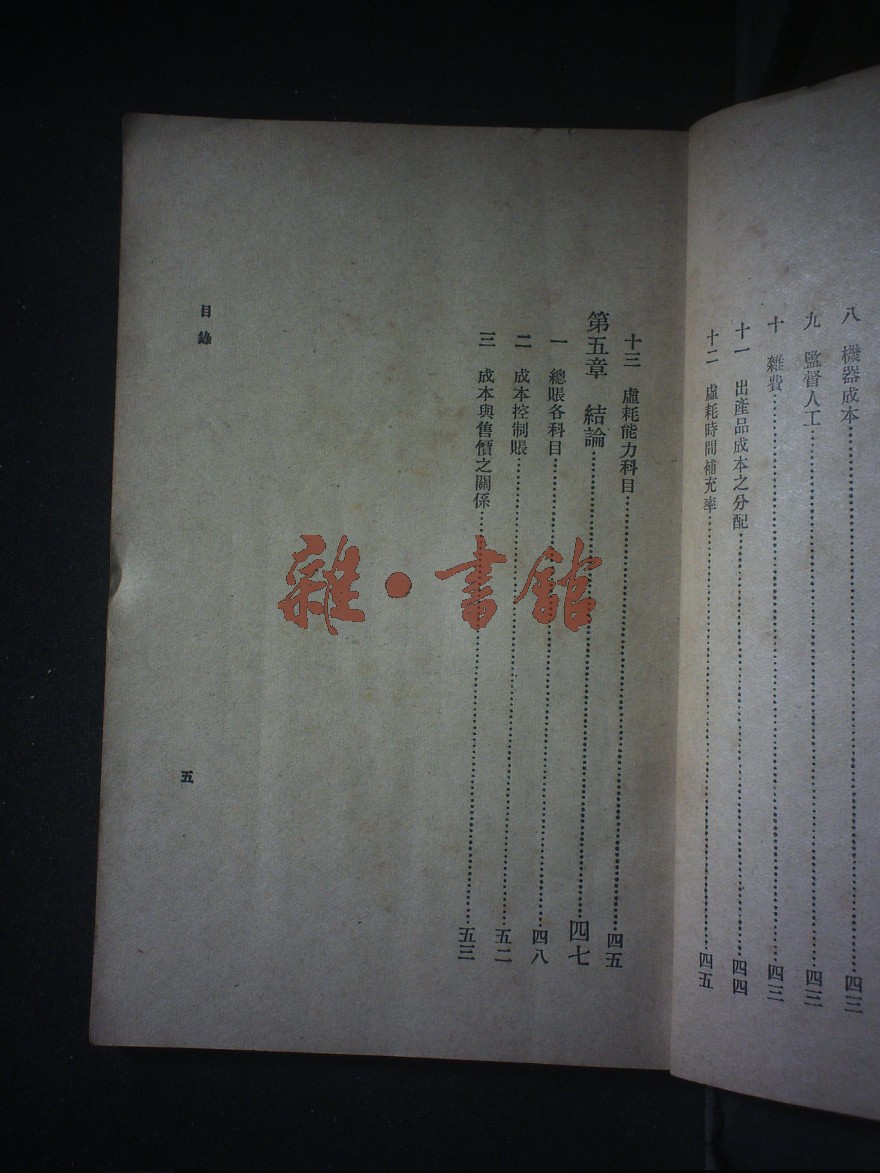 八　機器成本……四三
九　監督人工……四三
十　雜費……四三
十一　出產品成本之分配……四四
十二　虛耗時間補充率……四五
十三　虛耗能力科目……四五
第五章　結論……四七
一　總賬各科目……四八
二　成本控制賬……五二
三　成本與售價之關係……五三
目錄
五
雜·書館